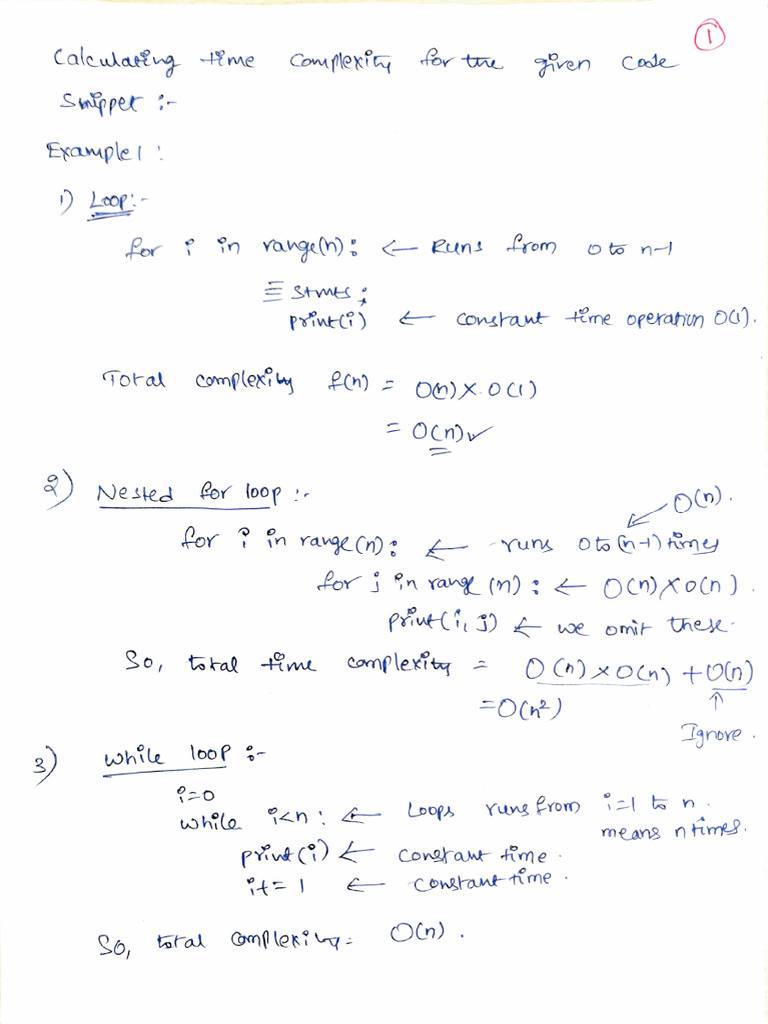 1
Calculating time complexity for the given code
Snippet :-
Example 1 :
1) Loop:-
for i in range(n): ← Runs from 0 to n-1
≡ stmts ;
print(i) ← constant time operation O(1).
Total complexity f(n) = O(n) × O(1)
= O(n) ✓
2) Nested for loop :-
O(n).
for i in range(n): ← runs 0 to (n-1) times
for j in range (n) : ← O(n) × O(n).
print(i, j) ← we omit these.
So, total time complexity = O(n) × O(n) + O(n)
= O(n²)
↑
Ignore.
3) While loop :-
i=0
while i<n: ← Loops runs from i=1 to n.
means n times.
print(i) ← constant time.
i+= 1 ← constant time.
So, total complexity = O(n).